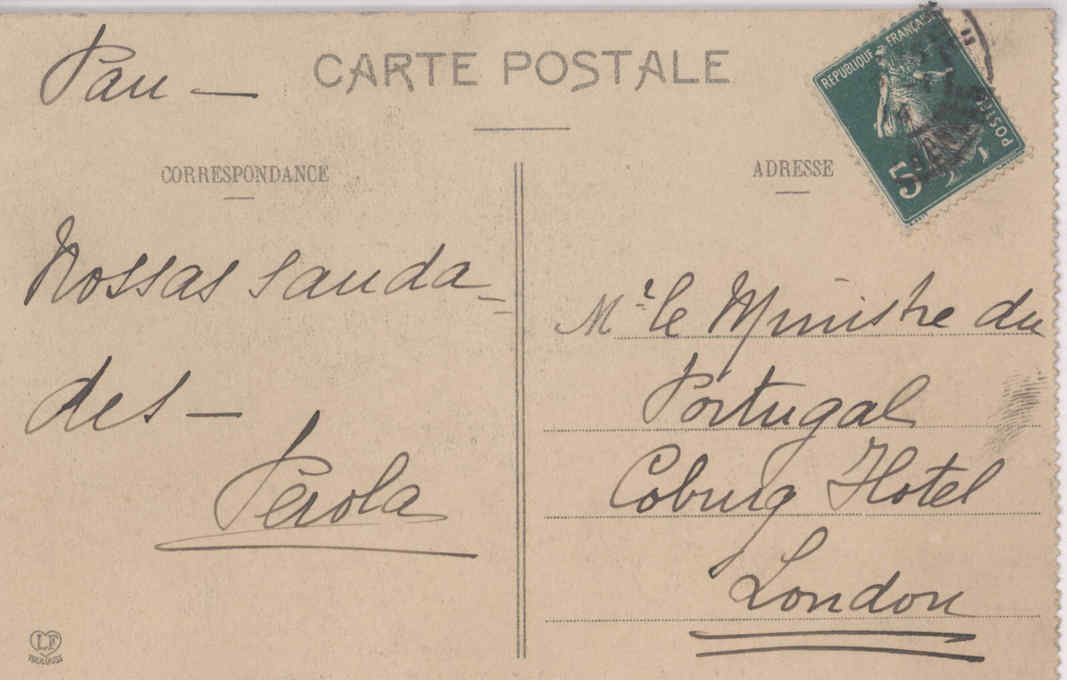 Pau —
CARTE POSTALE
CORRESPONDANCE
Nossas sauda-
des —
Perola
LF
TOULOUSE
REPUBLIQUE FRANÇAISE
POSTES
5
ADRESSE
Mr. le Ministre du
Portugal
Coburg Hotel
London